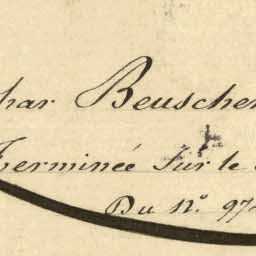 par Beuscher
Terminée Sur le
Du N.º 97